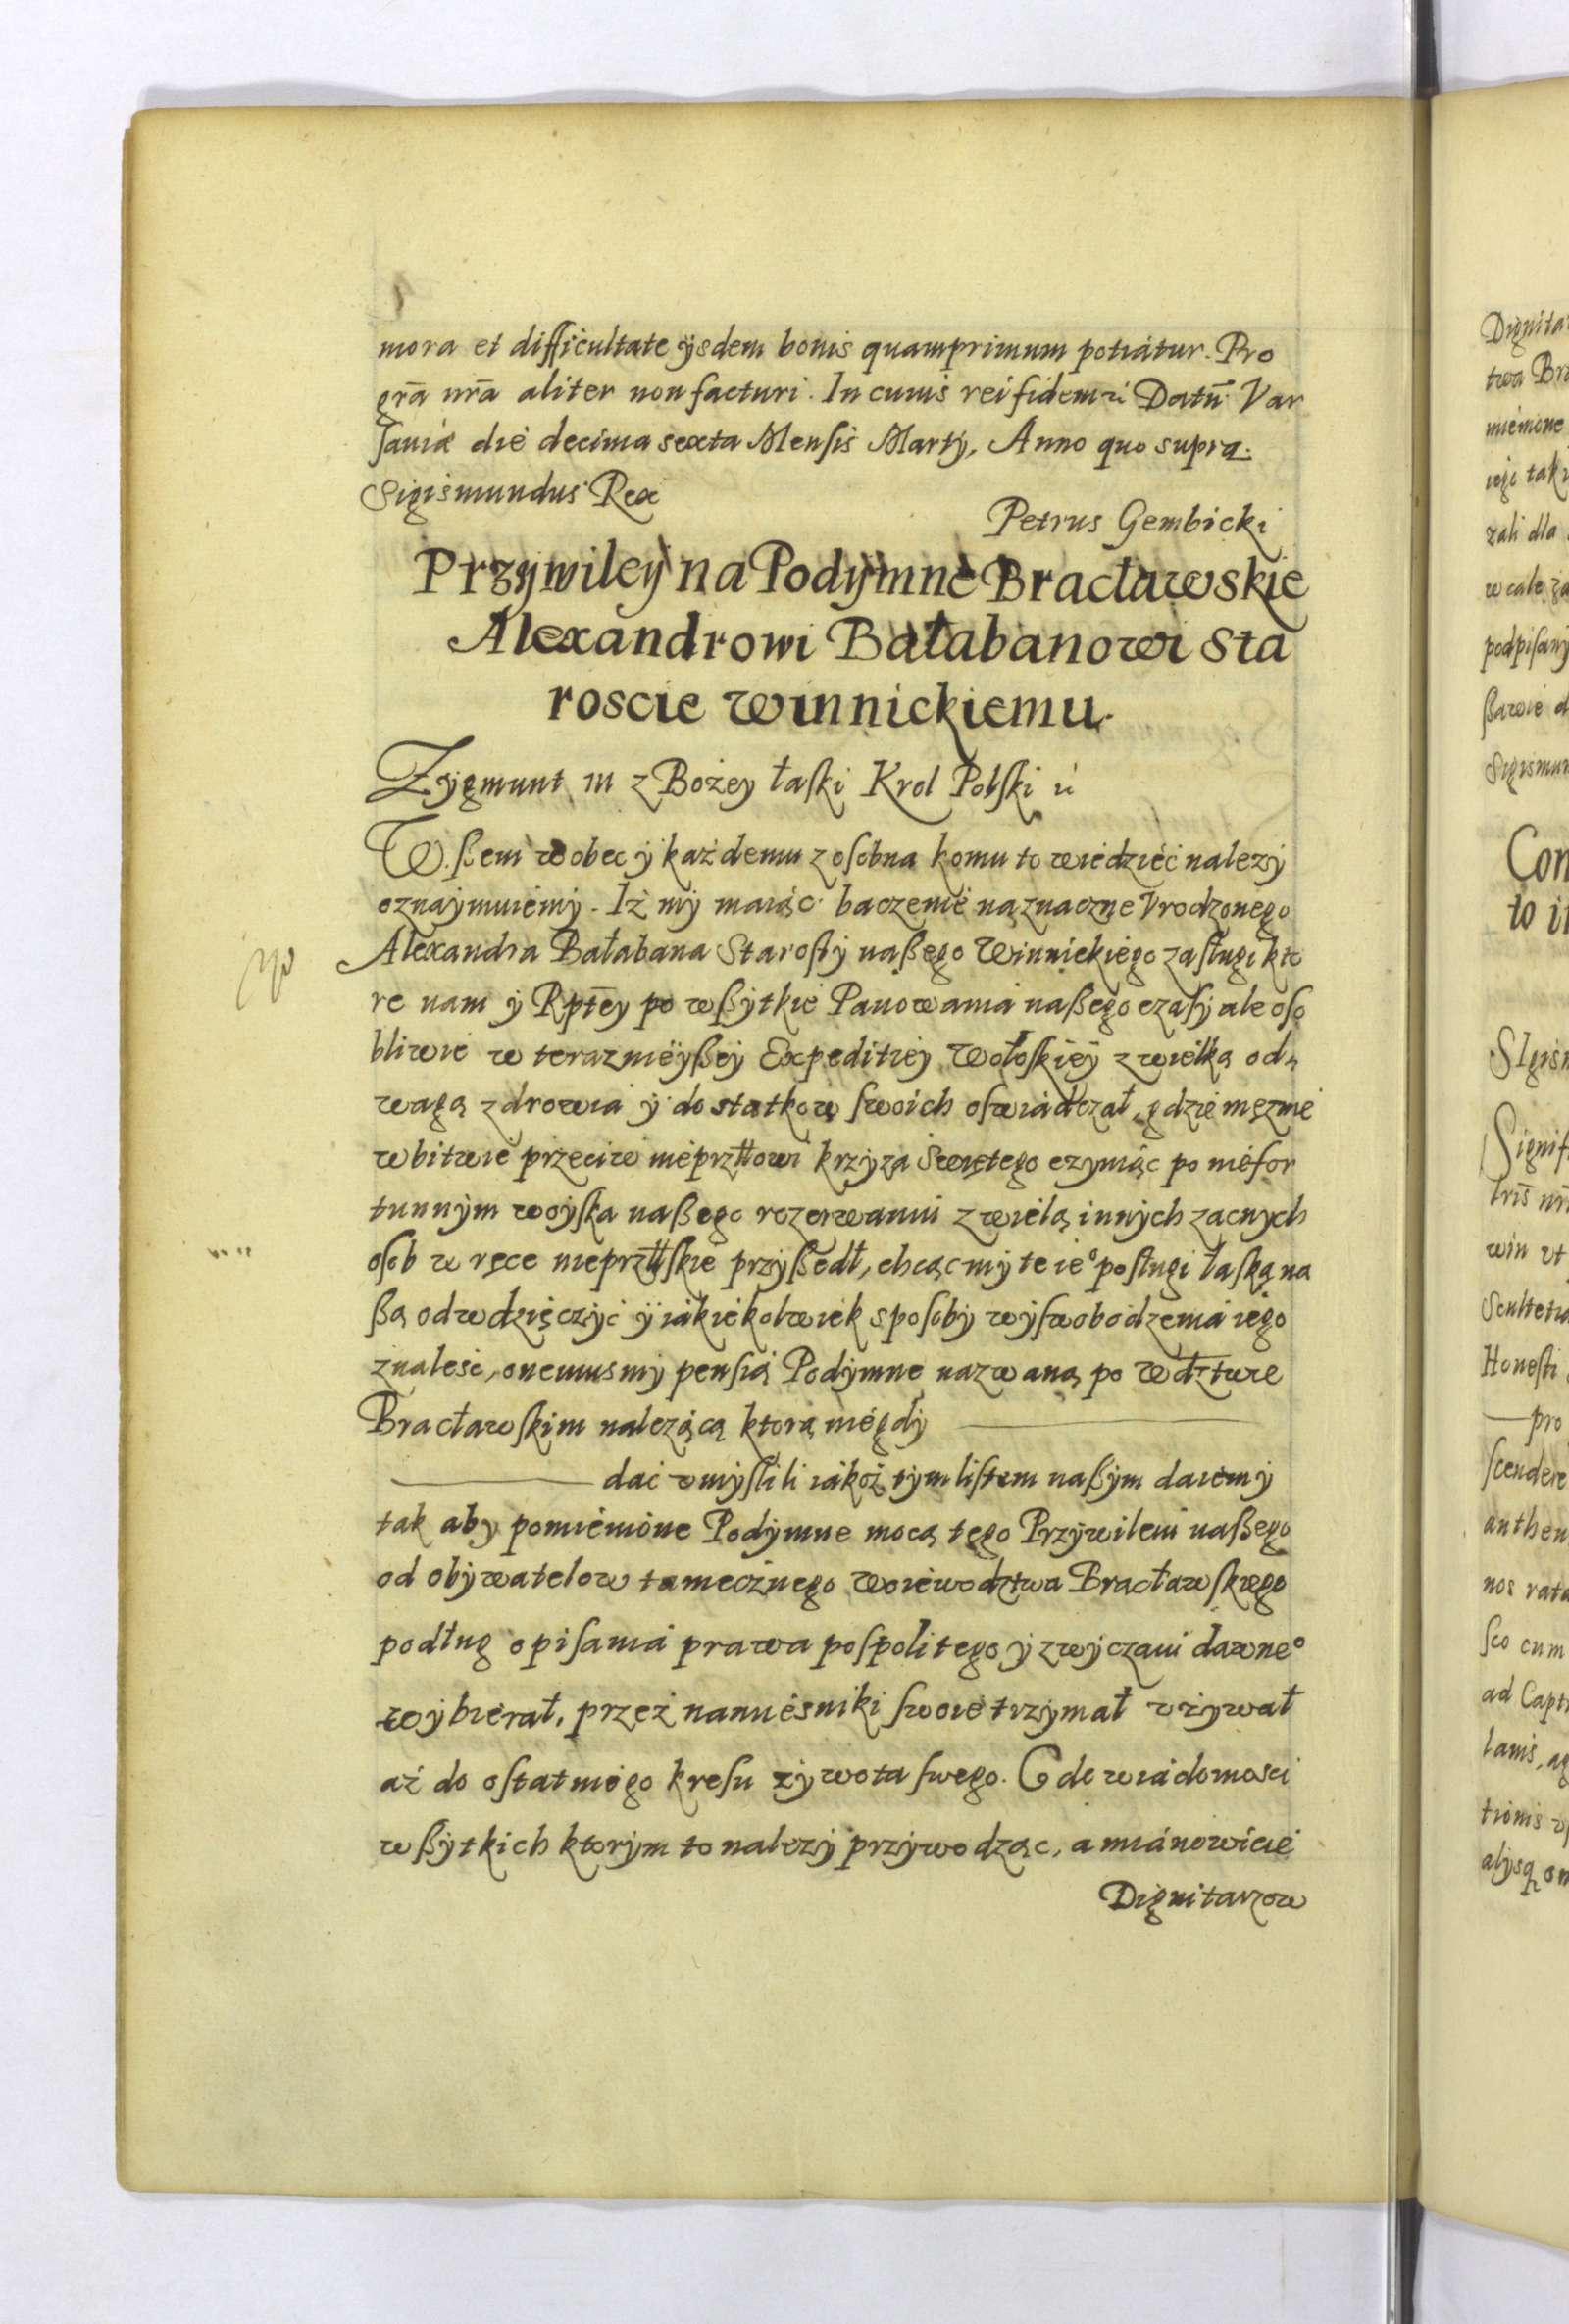 mora et difficultate ijsdem bonis quamprimum potiatur. Pro
gra̅ nra̅ aliter non facturi. In cuius rei fidem Datu̅ Var
saviæ die decima sexta Mensis Martij, Anno quo supra.
Sigismundus Rex
Petrus Gembicki
Przywiley na Podymne Bracławskie
Alexandrowi Bałabanowi Sta
roscie winnickiemu.
Zygmunt III z Bożey łaski Krol Polski
Wßem wobec ÿ każdemu z osobna komu to wiedzieć nalezÿ
oznaÿmuiemÿ. Iż mÿ maiąc baczenie na znaczne Vrodzonego
Alexandra Bałabana Starosty naßego Winnickiego zasługi kto
re nam ÿ Rpte̅y po wßÿtkie Panowania naßego czasÿ ale oso
bliwie w teraznieÿßeÿ Expeditieÿ Wołoskieÿ z wielką od
wagą zdrowia ÿ dostatkow swoich oswiadczał, gdzie męznie
w bitwie przeciw nieprzłłowi krzÿza Swiętego czÿniąc po niefor
tunnÿm woÿska naßego rozerwaniu z wielą innÿch zacnych
osob w ręce nieprzłłskie przÿßedł, chcąc mÿ te ie° posługi łaską na
ßą odwdzięczÿć ÿ iakiekolwiek sposobÿ wÿswobodzenia iego
znalesc, onemusmÿ pensią Podÿmne nazwaną po Wdztwie
Bracławskim nalezącą ktorą niegdÿ
dać vmÿslili iakoż tÿm listem naßÿm daiemÿ
tak aby pomienione Podÿmne mocą tego Przÿwileiu naßego
od obÿwatelow tamecznego Woiewodztwa Bracławskiego
podług opisania prawa pospolitego ÿ zwÿczaiu dawne°
wÿbierał, przez namiesniki swoie trzÿmał vżÿwał
aż do ostatniego kresu zÿwota swego. Co do wiadomosci
wßÿtkich ktorÿm to nalezÿ przÿwodząc, a mianowicie
Dignitarzow